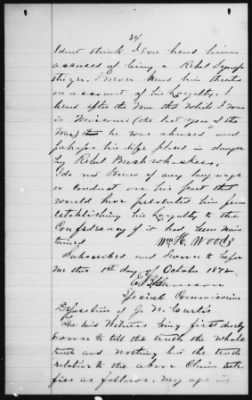 24
I dont think I ever heard him
accused of being a Rebel Sympa
thizer. I never heard him threatened
on account of his loyalty. I
heard after the war that while I was
in Missouri (the last year of the
War) he was abused and
perhaps his life placed in danger
by Rebel Bush whackers.
I do not know of any language
or conduct on his part that
would have prevented him from
establishing his loyalty to the
Confederacy if it had been main
tained
Wm H. Woods
Subscribed and Sworn to before
me this 1st day of October 1872.
Special Commissioner
Deposition of J. N. Curtis
The said Witness being first duly
sworn to tell the truth the whole
truth and nothing but the truth
relative to the above Claim testi
fies as follows. My age is